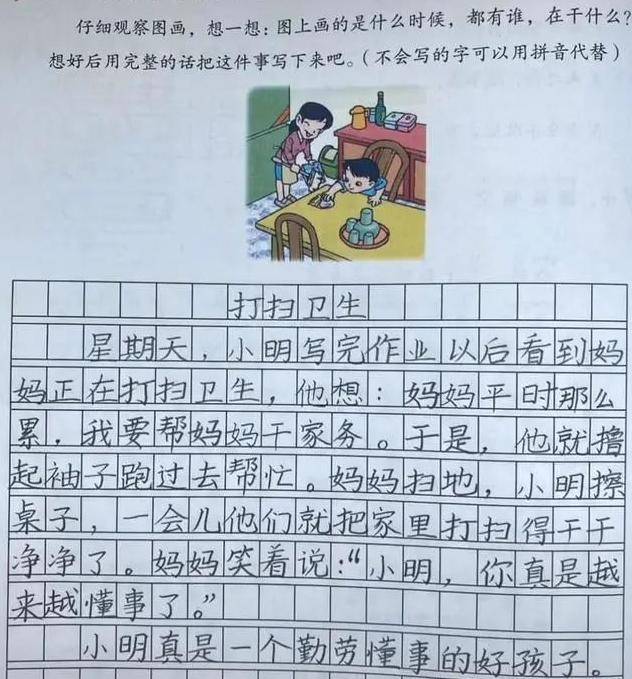 仔细观察图画，想一想：图上画的是什么时候，都有谁，在干什么？
想好后用完整的话把这件事写下来吧。（不会写的字可以用拼音代替）
打扫卫生
星期天，小明写完作业以后看到妈
妈正在打扫卫生，他想：妈妈平时那么
累，我要帮妈妈干家务。于是，他就撸
起袖子跑过去帮忙。妈妈扫地，小明擦
桌子，一会儿他们就把家里打扫得干干
净净了。妈妈笑着说：“小明，你真是越
来越懂事了。”
小明真是一个勤劳懂事的好孩子。